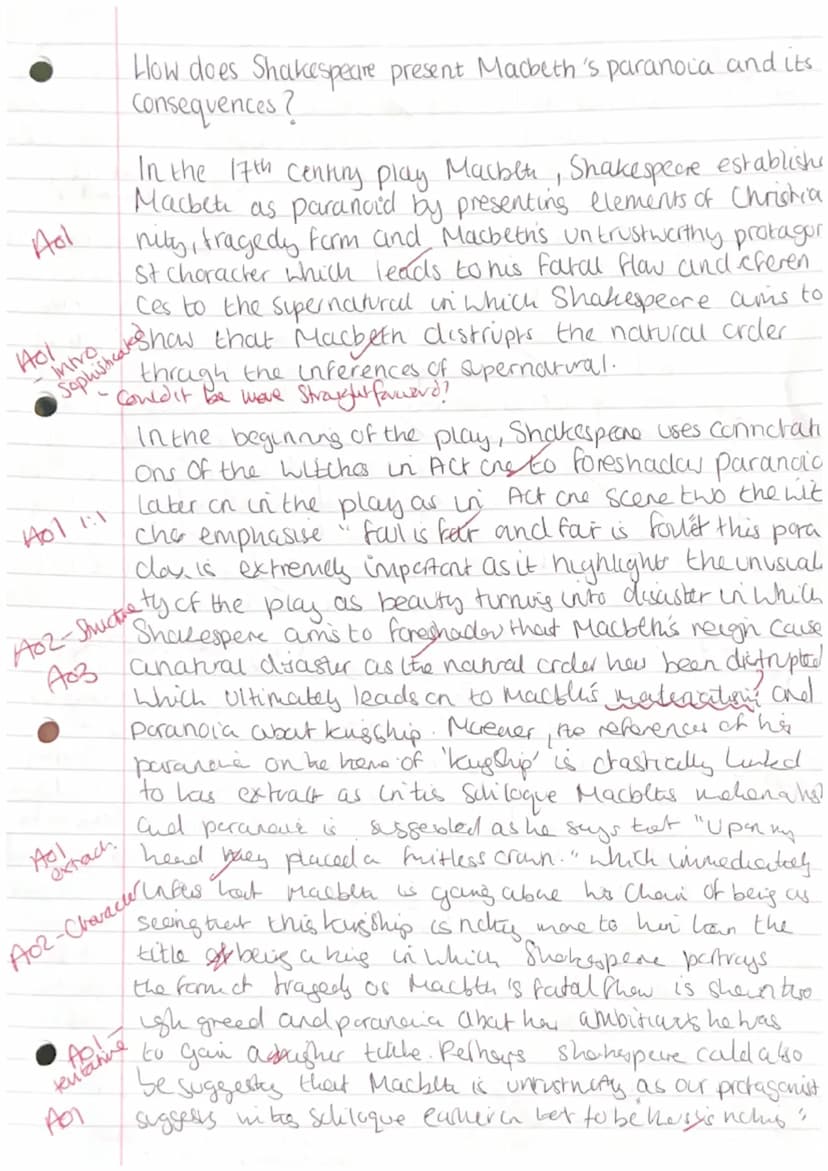 How does Shakespeare present Macbeth's paranoia and its
consequences?
In the 17th century play Macbeth, Shakespeare establishe
Macbeth as paranoid by presenting elements of Christia
AO1
nity, tragedy form and Macbeth's untrustworthy protagon
ist character which leads to his fatal flaw and referen
ces to the supernatural in which Shakespeare aims to
AO1
- Intro
sophisticated
show that Macbeth distrupts the natural order
through the inferences of supernatural.
- Could it be more straightforward?
In the beginning of the play, Shakespeare uses connotati
ons of the witches in Act one to foreshadow paranoia
later on in the play as in Act one scene two the wit
AO1 1:1
ches emphasise "foul is fair and fair is foul" this para
dox is extremely important as it highlights the unusual
ty of the play as beauty turning into disaster in which
AO2 - Structure
Shakespere aims to foreshadow that Macbeth's reign cause
AO3
a natural disaster as the natural order has been distrupted
which ultimately leads on to Macbeth's and
paranoia about kingship. Moreover, the references of his
paranoia on the theme of 'kingship' is drastically linked
to this extract as in this soliloque Macbeths
and paranoia is suggested as he says that "Upon my
AO1
extract.
head they placed a fruitless crown." which immediately
AO2 - Character
infers that Macbeth is going above his chain of being as
seeing that this kingship is nothing more to him than the
title of being a king in which Shakespere portrays
the form of tragedy as Macbeth's fatal flaw is shown thro
ugh greed and paranoia about how ambitious he was
AO1 -
tentative
to gain a higher title. Perhaps shakespeare could also
be suggesting that Macbeth is untrustworthy as our protagonist
AO1
suggests in his soliloque earlier on "to be thus is nothing"